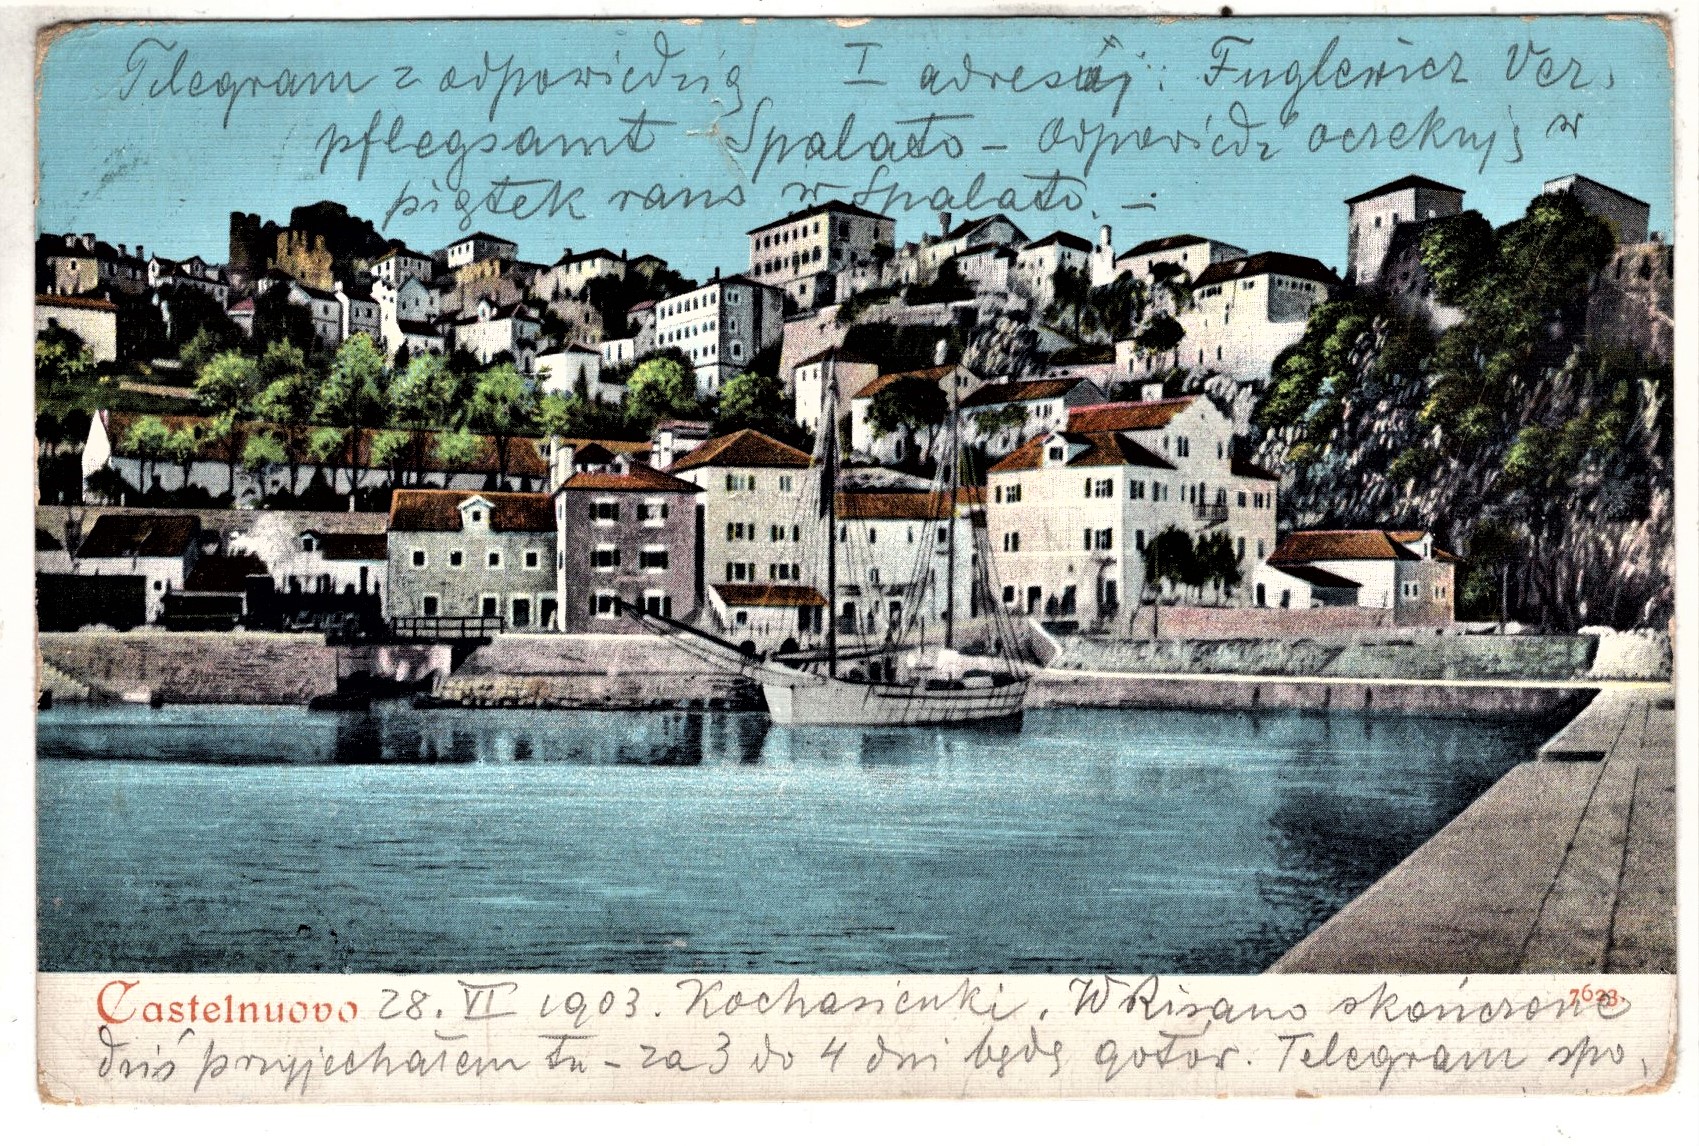 Telegram z odpowiedzią I adresuj: Fuglewicz Ver,
pflegsamt Spalato – Odpowiedź oczekuję w
piątek rano w Spalato. –
Castelnuovo 28. VI 1903. Kochasieńki. W Risano skończone 7623.
dziś przyjechałem tu – za 3 do 4 dni będę gotów. Telegram spo,